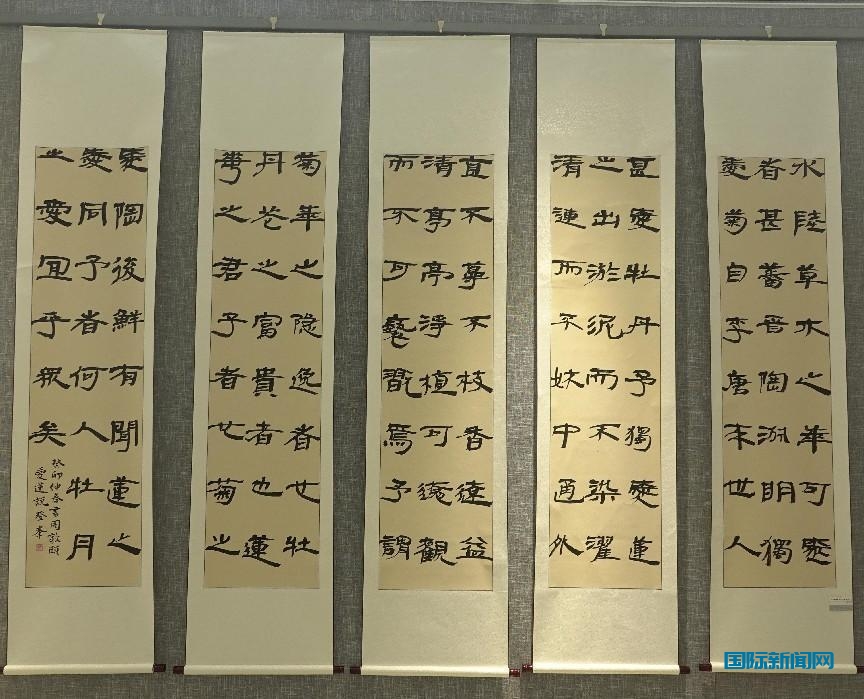 水陸草木之華可愛
者甚蕃晉陶淵明獨
愛菊自李唐来世人
甚愛牡丹予獨愛蓮
之出淤泥而不染濯
清漣而不妖中通外
直不蔓不枝香遠益
清亭亭淨植可遠觀
而不可褻翫焉予謂
菊華之隐逸者也牡
丹花之富貴者也蓮
華之君子者也菊之
愛陶後鮮有聞蓮之
愛同予者何人牡丹
之愛宜乎眾矣
癸卯仲春書周敦頤
愛蓮説登峯
国际新闻网